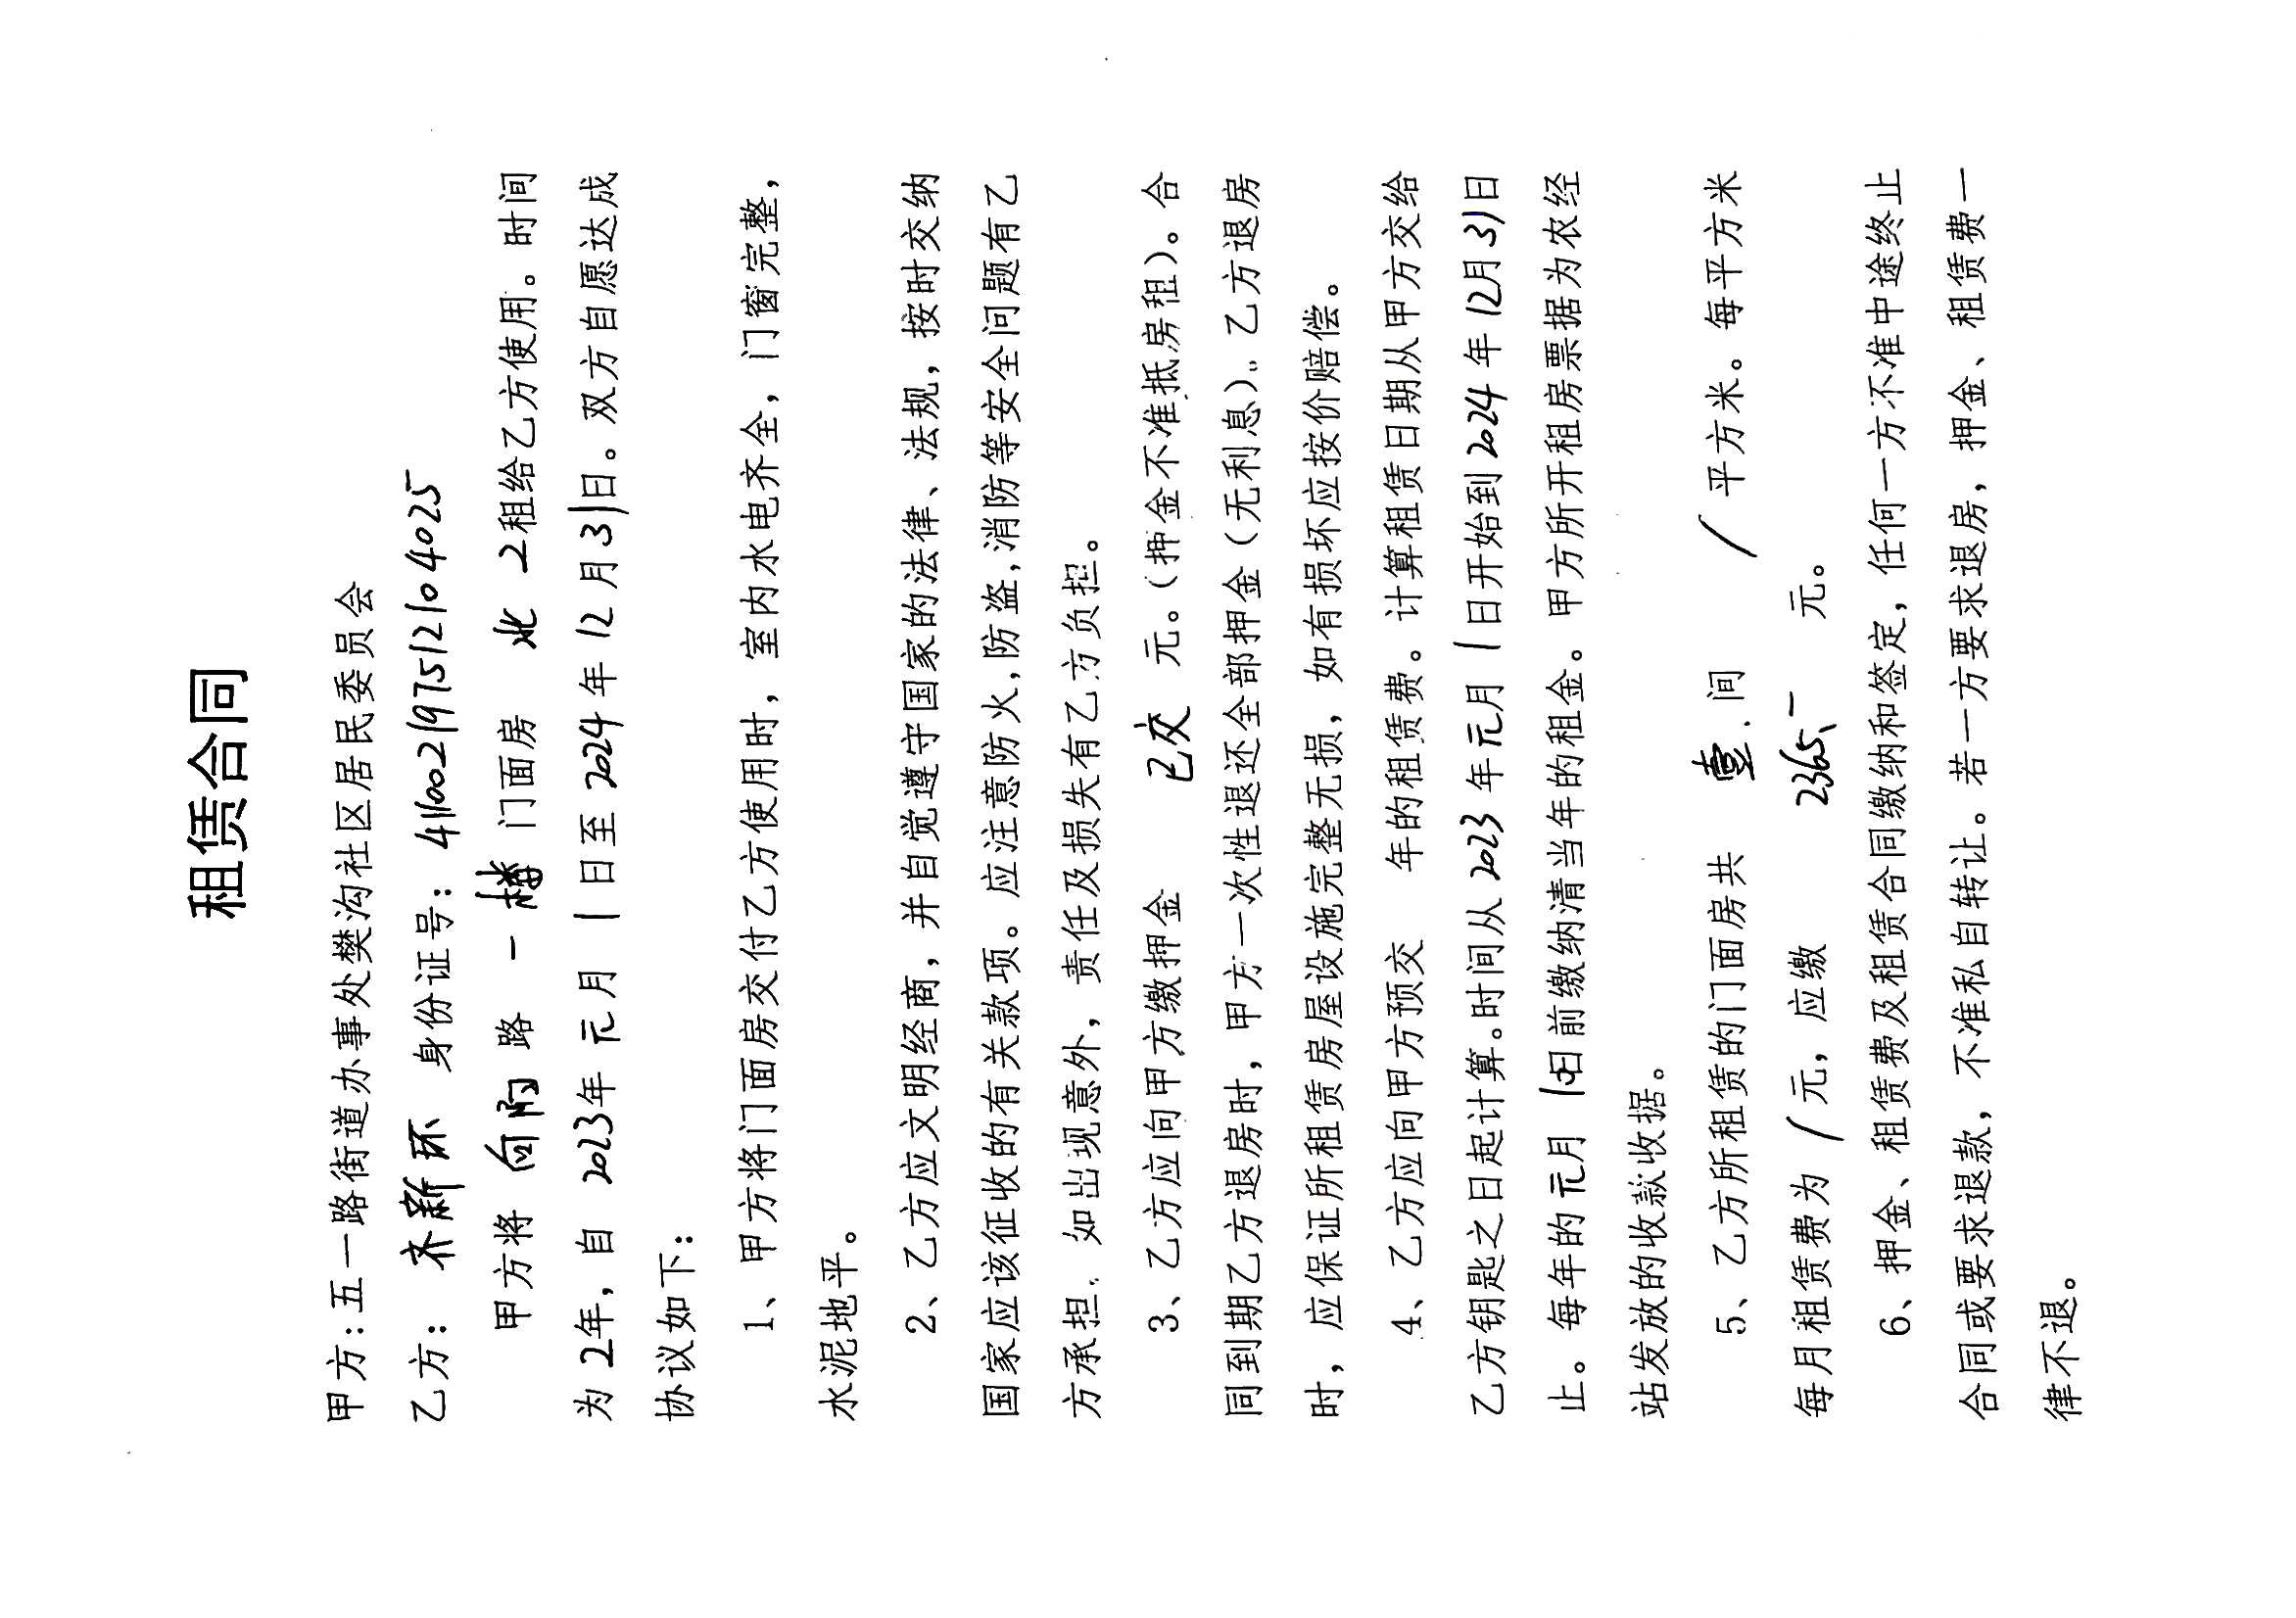 租赁合同
甲方:五一路街道办事处樊沟社区居民委员会
乙方: 齐新环 身份证号: 411002197512104025
甲方将 向阳 路 一楼 门面房 北 2租给乙方使用。时间
为2年, 自 2023年 元月 1日至 2024年 12月 31日。双方自愿达成
协议如下:
1、甲方将门面房交付乙方使用时, 室内水电齐全, 门窗完整,
水泥地平。
2、乙方应文明经商, 并自觉遵守国家的法律、法规, 按时交纳
国家应该征收的有关款项。应注意防火,防盗,消防等安全问题有乙
方承担. 如出现意外, 责任及损失有乙方负担。
3、乙方应向甲方缴押金 已交 元。(押金不准抵房租)。合
同到期乙方退房时, 甲方一次性退还全部押金(无利息)。乙方退房
时, 应保证所租赁房屋设施完整无损, 如有损坏应按价赔偿。
4、乙方应向甲方预交 年的租赁费。计算租赁日期从甲方交给
乙方钥匙之日起计算。时间从2023年元月1日开始到2024年12月31日
止。每年的元月10日前缴纳清当年的租金。甲方所开租房票据为农经
站发放的收款收据。
5、乙方所租赁的门面房共 壹 间 / 平方米。每平方米
每月租赁费为 / 元, 应缴 2365、一 元。
6、押金、租赁费及租赁合同缴纳和签定, 任何一方不准中途终止
合同或要求退款, 不准私自转让。若一方要求退房, 押金、租赁费一
律不退。